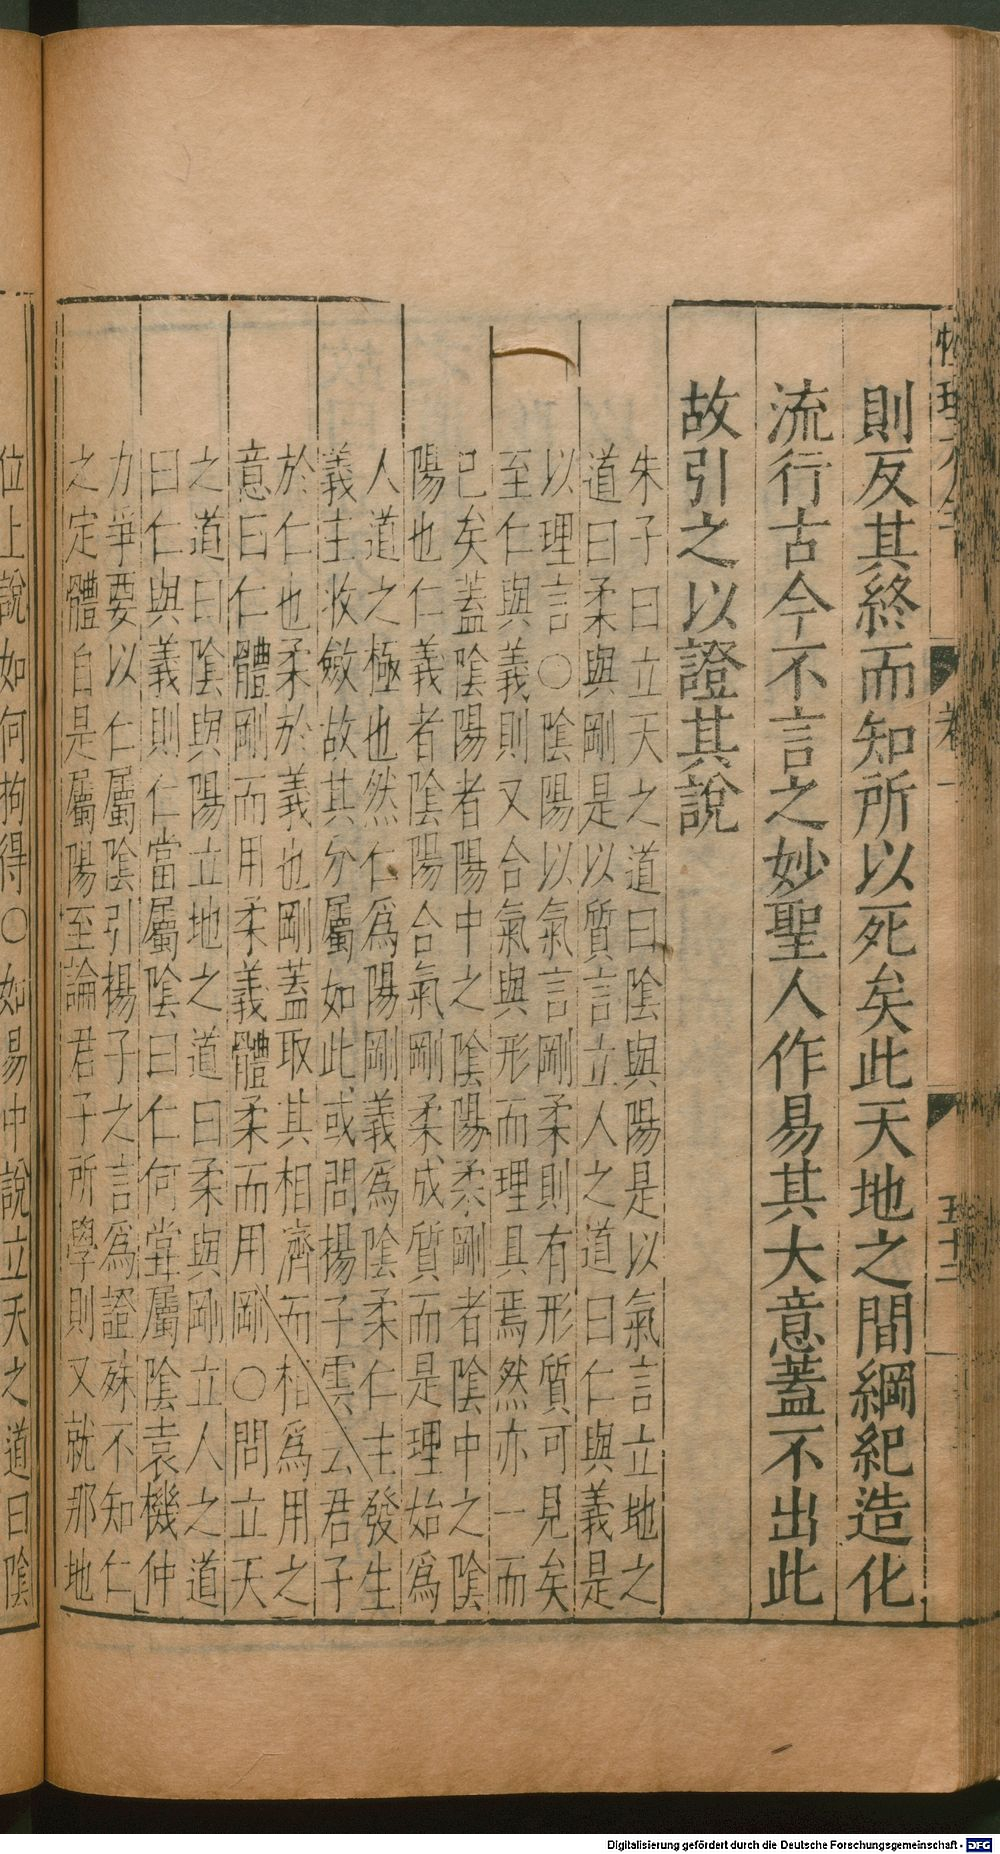 則反其終而知所以死矣此天地之間綱紀造化
流行古今不言之妙聖人作易其大意蓋不出此
故引之以證其說
朱子曰立天之道曰陰與陽是以氣言立地之
道曰柔與剛是以質言立人之道曰仁與義是
以理言○陰陽以氣言剛柔則有形質可見矣
至仁與義則又合氣與形而理具焉然亦一而
已矣蓋陰陽者陽中之陰陽柔剛者陰中之陰
陽也仁義者陰陽合氣剛柔成質而是理始為
人道之極也然仁為陽剛義為陰柔仁主發生
義主收斂故其分屬如此或問揚子雲云君子
於仁也柔於義也剛蓋取其相濟而相為用之
意曰仁體剛而用柔義體柔而用剛○問立天
之道曰陰與陽立地之道曰柔與剛立人之道
曰仁與義則仁當屬陰曰仁何嘗屬陰袁機仲
力爭要以仁屬陰引揚子之言為證殊不知仁
之定體自是屬陽至論君子所學則又就那地
位上說如何拘得○如易中說立天之道曰陰
卷一
五十二
Digitalisierung gefördert durch die Deutsche Forschungsgemeinschaft - DFG